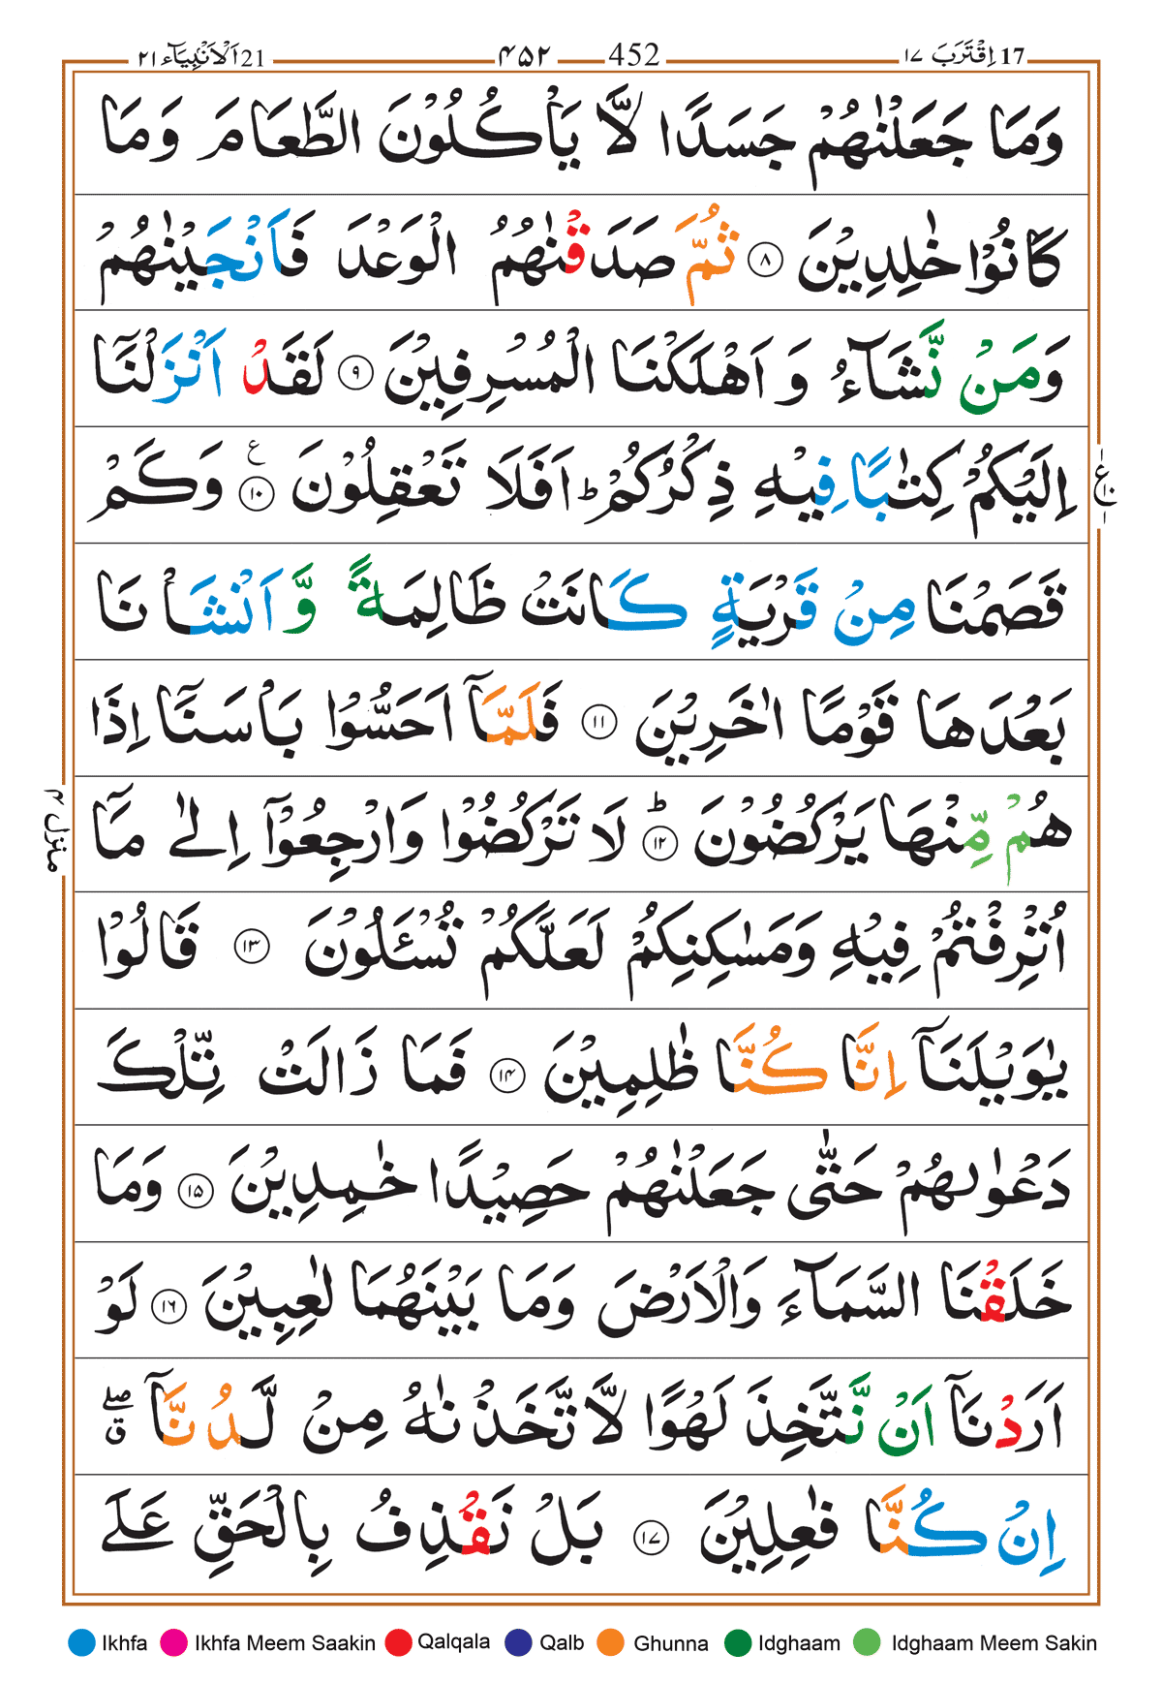 17 اِقْتَرَبَ ١٧ 452 ۴۵۲ 21 اَلْاَنْۢبِيَآء ٢١
وَمَا جَعَلْنٰهُمْ جَسَدًا لَّا يَاْكُلُوْنَ الطَّعَامَ وَمَا
كَانُوْا خٰلِدِيْنَ ۸ ثُمَّ صَدَقْنٰهُمُ الْوَعْدَ فَاَنْجَيْنٰهُمْ
وَمَنْ نَّشَآءُ وَ اَهْلَكْنَا الْمُسْرِفِيْنَ ۹ لَقَدْ اَنْزَلْنَآ
اِلَيْكُمْ كِتٰبًا فِيْهِ ذِكْرُكُمْ ؕ اَفَلَا تَعْقِلُوْنَ ۱۰ ع وَكَمْ
ع ١٠ ١
قَصَمْنَا مِنْ قَرْيَةٍ كَانَتْ ظَالِمَةً وَّ اَنْشَاْنَا
بَعْدَهَا قَوْمًا اٰخَرِيْنَ ۱۱ فَلَمَّآ اَحَسُّوْا بَاْسَنَآ اِذَا
هُمْ مِّنْهَا يَرْكُضُوْنَ ۱۲ ؕ لَا تَرْكُضُوْا وَارْجِعُوْٓا اِلٰى مَآ
منزل ۴
اُتْرِفْتُمْ فِيْهِ وَمَسٰكِنِكُمْ لَعَلَّكُمْ تُسْـَٔلُوْنَ ۱۳ قَالُوْا
يٰوَيْلَنَآ اِنَّا كُنَّا ظٰلِمِيْنَ ۱۴ فَمَا زَالَتْ تِّلْكَ
دَعْوٰىهُمْ حَتّٰى جَعَلْنٰهُمْ حَصِيْدًا خٰمِدِيْنَ ۱۵ وَمَا
خَلَقْنَا السَّمَآءَ وَالْاَرْضَ وَمَا بَيْنَهُمَا لٰعِبِيْنَ ۱۶ لَوْ
اَرَدْنَآ اَنْ نَّتَّخِذَ لَهْوًا لَّاتَّخَذْنٰهُ مِنْ لَّدُنَّآ ۖق
اِنْ كُنَّا فٰعِلِيْنَ ۱۷ بَلْ نَقْذِفُ بِالْحَقِّ عَلَى
Ikhfa Ikhfa Meem Saakin Qalqala Qalb Ghunna Idghaam Idghaam Meem Sakin